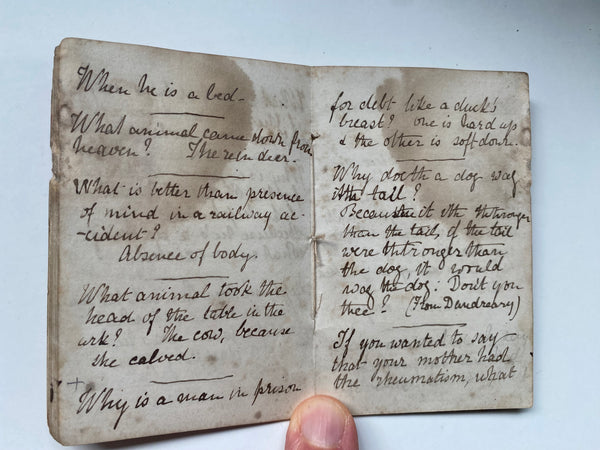 When he is a bed-
What animal came down from
heaven? The rein deer.
What is better than presence
of mind in a railway ac-
-cident?
Absence of body.
What animal took the
head of the table in the
ark? The cow, because
she calved.
+
Why is a man in prison
for debt like a duck's
breast? one is hard up
& the other is soft down.
Why doeth a dog wag
ith tail?
Because it ith thtronger
than the tail, if the tail
were thtronger than
the dog, it would
wag the dog. Don't you
thee? (From Dundreary)
If you wanted to say
that your mother had
the rheumatism, what